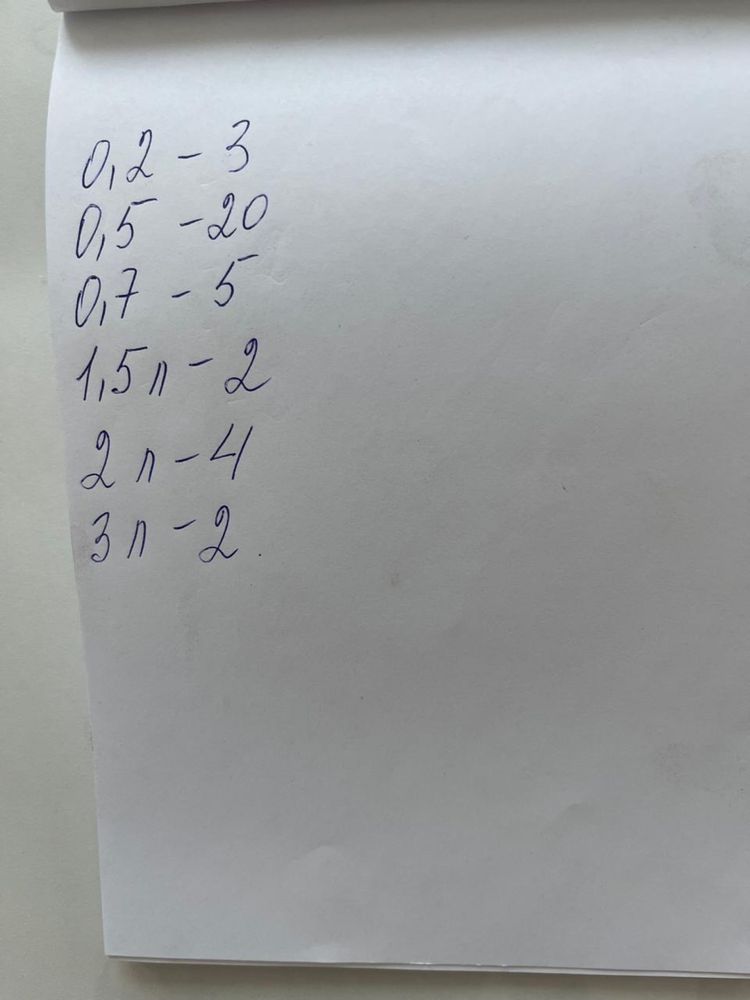 0,2 - 3
0,5 - 20
0,7 - 5
1,5 л - 2
2 л - 4
3 л - 2